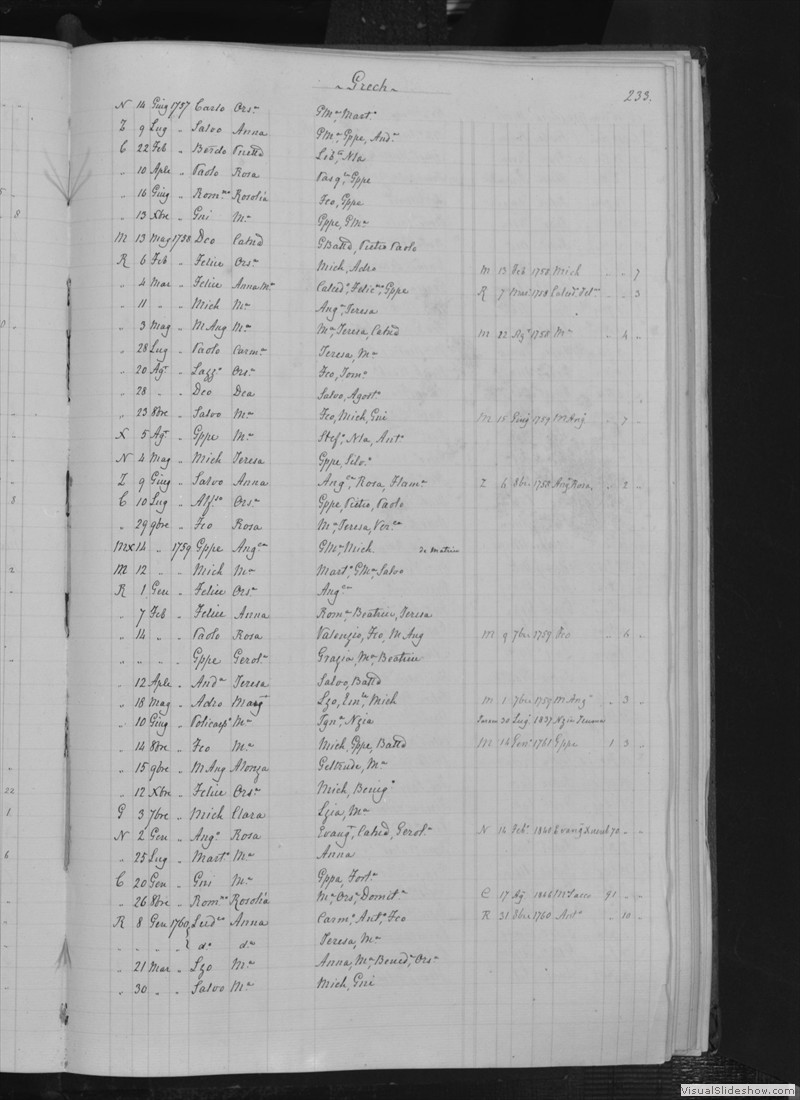 Grech
233.
N 14 Giug 1757 Carlo Ors.a GM.a, Mart.o
Z 9 Lug " Salvo Anna GM.a, Gppe, And.a
C 22 Feb " Bordo Lib.a, Nla
" 10 Aple " Paolo Rosa Pasq.le, Gppe
" 16 Giug " Rom.no Rosolia Fco, Gppe
" 13 Xbre " Gni M.a Gppe, GM.a
M 13 Mag 1758 Dco Catnd GBattd, Pietro Paolo
R 6 Feb " Felice Ors.a Mich, Adeo M 13 Feb 1758 Mich " " 7
" 4 Mar " Felice Anna M.a Catnd, Felic.no, Gppe R 7 1758 " " 3
" 11 " " Mich M.a Ang.o, Teresa
" 3 Mag " M Ang M.a M.a Teresa, Catnd M 22 Ag.o 1758 M.a " 4 "
" 28 Lug " Paolo Carm.a Teresa, M.a
" 20 Ag.o " Lazz.o Ors.a Fco, Tom.o
" 28 " " Dco Dca Salvo, Agost.o
" 23 8bre " Salvo M.a Fco, Mich, Gni M 15 Giug 1759 M Ang " 7 "
X 5 Ag.o " Gppe M.a Stef.o, Nla, Ant.o
N 4 Mag " Mich Teresa Gppe, Silv.o
Z 9 Giug " Salvo Anna Ang.ca, Rosa, Flam.a Z 6 8bre 1758 Ang Rosa " 2 "
C 10 Lug " Alf.so Ors.a Gppe, Pietro, Paolo
" 29 9bre " Fco Rosa M.a, Teresa, Ver.ca
MX 14 " 1759 Gppe Ang.ca GM.a, Mich
M 12 " " Mich M.a Mart.o, GM.a, Salvo
R 1 Gen " Felice Ors.a Ang.ca
" 7 Feb " Felice Anna Rom.a, Beatrice, Teresa
" 14 " " Paolo Rosa Valenzio, Fco, M Ang M 9 7bre 1759 Fco " 6 "
" " " " Gppe Gerol.a Grazia, M.a, Beatrice
" 12 Aple " And.a Teresa Salvo, Battd
" 18 Mag " Adeo Marg.t Lzo, Em.le, Mich M 1 7bre 1759 M Ang.o " 3 "
" 10 Giug " Policarp.o M.a Ign.o, Nzia 30 Lug 1837 Nzia
" 14 8bre " Fco M.a Mich, Gppe, Battd M 14 Gen.o 1761 Gppe 1 3 "
" 15 9bre " M Ang Alonza Geltrude, M.a
" 12 Xbre " Felice Ors.a Mich, Benig.o
G 3 7bre " Mich Clara Lzia, M.a
N 2 Gen " Ang.o Rosa Evang.ta, Catnd, Gerol.a N 14 Feb.o 70 " "
" 25 Lug " Mart.o M.a Anna
C 20 Gen " Gni M.a Gppa, Fort.o
" 26 8bre " Rom.no Rosolia M.a, Ors.a, Domit.a C 17 Ag 91 " "
R 8 Gen 1760 Anna Carm.o, Ant.o, Fco R 31 8bre 1760 Ant.o " 10 "
" " " " d.o d.a Teresa, M.a
" 21 Mar " Lzo M.a Anna, M.a, Bened.a, Ors.a
" 30 " " Salvo M.a Mich, Gni
5
8
0
3
2
22
1
6
VisualSlideshow.com